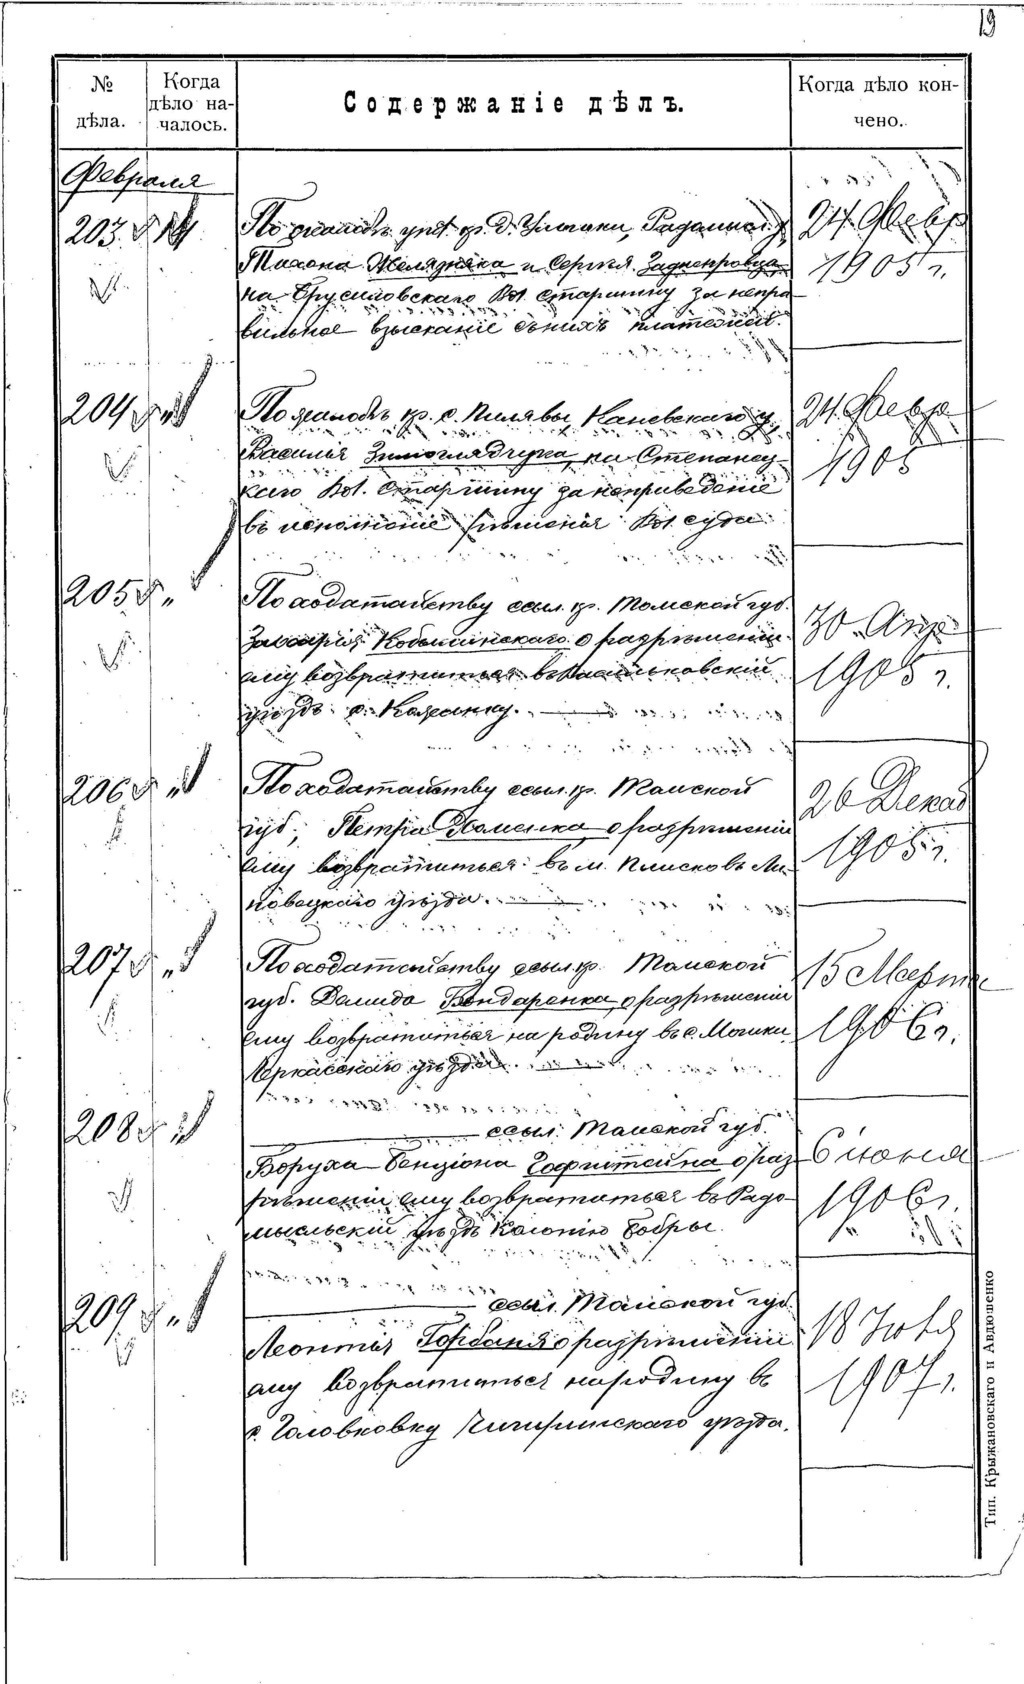 19
№ дѣла.
Когда дѣло на-
чалось.
Содержаніе дѣлъ.
Когда дѣло кон-
чено.
Февраля
203
По жалобѣ кр. д.
Тихона Желязняка и Сергѣя Заднепровца
на Брусиловскаго Вол. старшину за непра-
вильное взысканіе съ нихъ платежей.
24 Февр
1905 г.
204
По жалобѣ кр. с. Пилявы, Каневскаго у.
Василія на Степанец-
каго Вол. старшину за неприведеніе
въ исполненіе рѣшенія Вол. суда
24 Февр
1905
205 "
По ходатайству ссыл. кр. Томской губ.
Захарія о разрѣшеніи
ему возвратиться въ Васильковскій
уѣздъ с. Кожанку.
30 Апр
1905 г.
206 "
По ходатайству ссыл. кр. Томской
губ. Петра Хоменка о разрѣшеніи
ему возвратиться въ м. Плисковъ Ли-
повецкаго уѣзда.
26 Декаб
1905 г.
207 "
По ходатайству ссыл. кр. Томской
губ. Демида Бондаренка о разрѣшеніи
ему возвратиться на родину въ с.
Черкасскаго уѣзда.
15 Марта
1906 г.
208 "
ссыл. Томской губ.
Боруха-Бенціона Гофштейна о раз-
рѣшеніи ему возвратиться въ Радо-
мысльскій уѣздъ колонію Бобры.
6 іюня
1906 г.
209 "
ссыл. Томской губ.
Леонтія Горбаня о разрѣшеніи
ему возвратиться на родину въ
с. Головковку Чигиринскаго уѣзда.
18 Іюля
1907 г.
Тип. Крыжановскаго и Авдюшенко